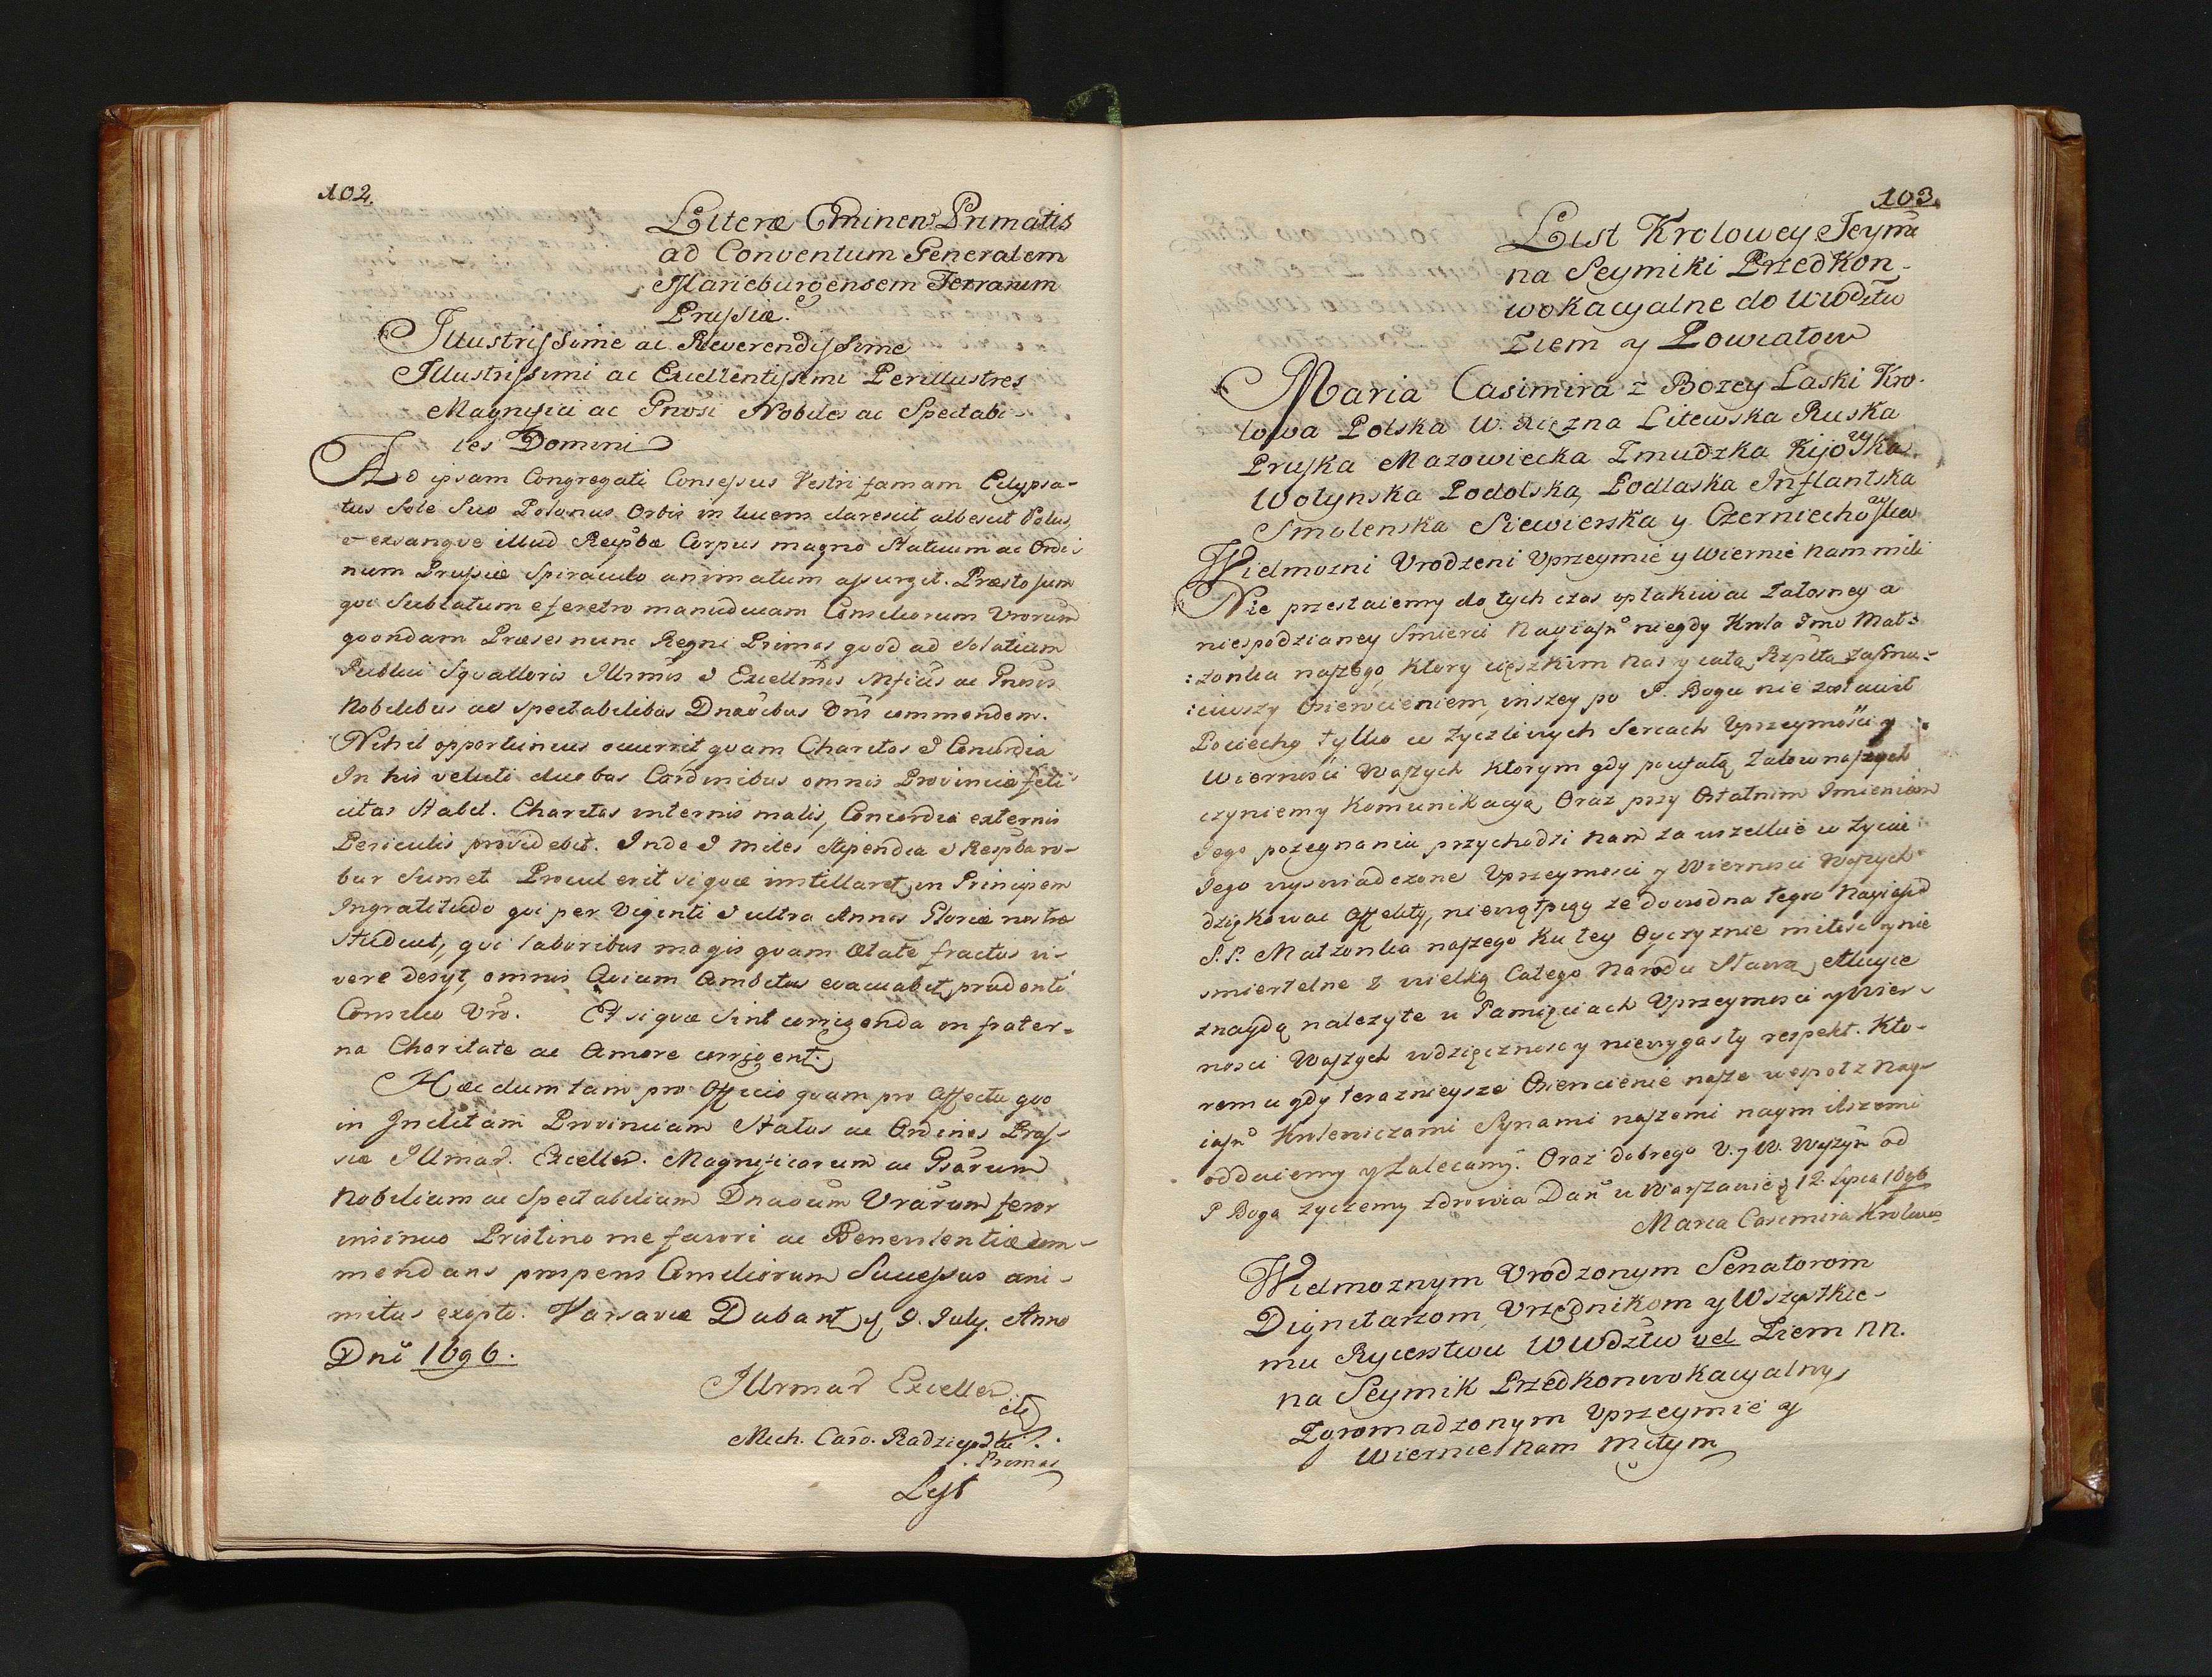 102.
Literæ Eminen. Primatis
ad Conventum Generalem
Marieburgensem Terrarum
Prussiæ.
Illustrissime ac Reverendissime
Illustrissimi ac Excellentissimi Perillustres
Magnifici ac Gnrosi Nobiles ac Spectabi-
les Domini
Ad ipsam Congregati Consessus Vestri famam Eclypsa-
tus Sole Suo Polonus Orbis in lucem clarescit albescit Polus,
& exsangve illud Reipbæ Corpus magno Statuum ac Ordi-
num Prussiæ Spiraculo animatum assurgit. Præsto sum
qvi Sublatum e feretro manuducam Consiliorum Vrorum
qvondam Præses nunc Regni Primas qvod ad Solatium
Publici Sqvalloris Illrmis & Excellmis Mficis ac Gnrosis
Nobilibus ac Spectabilibus Dnaõibus Vris commendem.
Nihil opportunius occurrit, qvam Charitas & Concordia
In his veluti duobus Cardinibus omnis Provinciæ feli-
citas stabit. Charitas internis malis, Concordia externis
Periculis providebit. Inde & miles stipendia & Respba ro-
bur Sumet Procul erit si qvæ instillaret in Principem
Ingratitudo qvi per Viginti & ultra Annos Gloriæ nostræ
studuit, qvi laboribus magis qvam ætate fractus vi-
vere desyt, omnis Qvium Ambitus evacuabit, prudenti
Consilio Vro. Et si qvæ sint corrigenda in frater-
na Charitate ac Amore corrigent.
Hæc dum tam pro Officio qvam pro Affectu qvo
in Inclitam Provinciam Status ac Ordines Prus-
siæ Illmar. Exceller. Magnificorum ac Gsorum
Nobilium ac Spectabilium Dnaõum Vrarum feror
insinuo Pristino me favori ac Benevolentiæ com-
mendans prosperos Consiliorum Successus ani-
mitus exopto. Varsaviæ Dabant. d. 9. July. Anno
Dni 1696.
Illrmar Exceller
Mich. Card. Radzieyoski.
Primas
List
103.
List Krolowey Jeymci
na Seymiki Przedkon-
wokacyalne do WWdztw
Ziem y Powiatow
Maria Casimira z Bozey Laski Kro-
lowa Polska W. Xiężna Litewska Ruska
Pruska Mazowiecka Zmudzka Kijowska
Wołynska Podolska, Podlaska Inflantska
Smolenska Siewierska y Czerniechowska
Wielmozni Urodzeni Uprzeymie y Wiernie nam mili
Nie przestaiemy do tych czas opłakiwac żałosney a
niespodzianey Smierci Nayiasno niegdy Krola Jmci Mał-
:zonka naszego, Ktory cięszkim nas y całą Rzpltą zasmu-
:ciwszy Osieroceniem, inszey po P. Bogu nie zostawił
Pociechy tylko w życzliwych Sercach Uprzeymości y
Wiernosci Waszych Ktorym gdy poufałą żalow naszych
czyniemy Komunikacyą, Oraz przy Ostatnim Imieniem
Jego pożegnaniu przychodzi nam za wszelkie w życiu
Jego wyswiadczone Uprzeymosci y Wiernosci Waszych
dziękowac Affekty, niewątpiąc ze dowodna tego Nayiasno
S.P. Małzonka naszego Ku tey Oyczyznie miłosc y nie
smiertelne z wielką Całego Narodu Sławą, Akcye
znaydą nalezyte w Pamięciach Uprzeymosci y Wier-
nosci Waszych wdzięcznosc y niewygasły respekt. Kto-
remu gdy terazniejsze Osierocienie nasze wespoł z Nay-
iasno Krolewiczami Synami naszemi naymilszemi
oddaiemy y zalecamy. Oraz dobrego U. y W. Waszym od
P Boga zyczemy zdrowia Dan w Warszawie d. 12. Lipca 1696
Maria Casimira Krolowa
Wielmoznym Urodzonym Senatorom
Dignitarzom, Urzędnikom y Wszystkie-
mu Rycerstwu WWdztw vel Ziem NN.
na Seymik Przedkonwokacyalny
Zgromadzonym Uprzeymie y
Wiernie nam miłym